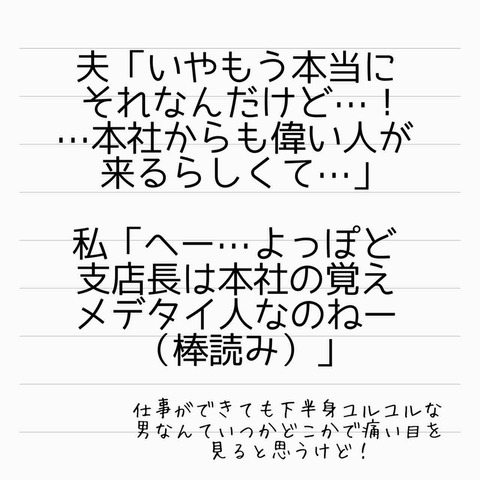 夫「いやもう本当に
それなんだけど…！
…本社からも偉い人が
来るらしくて…」
私「へー…よっぽど
支店長は本社の覚え
メデタイ人なのねー
（棒読み）」
仕事ができても下半身ユルユルな
男なんていつかどこかで痛い目を
見ると思うけど！